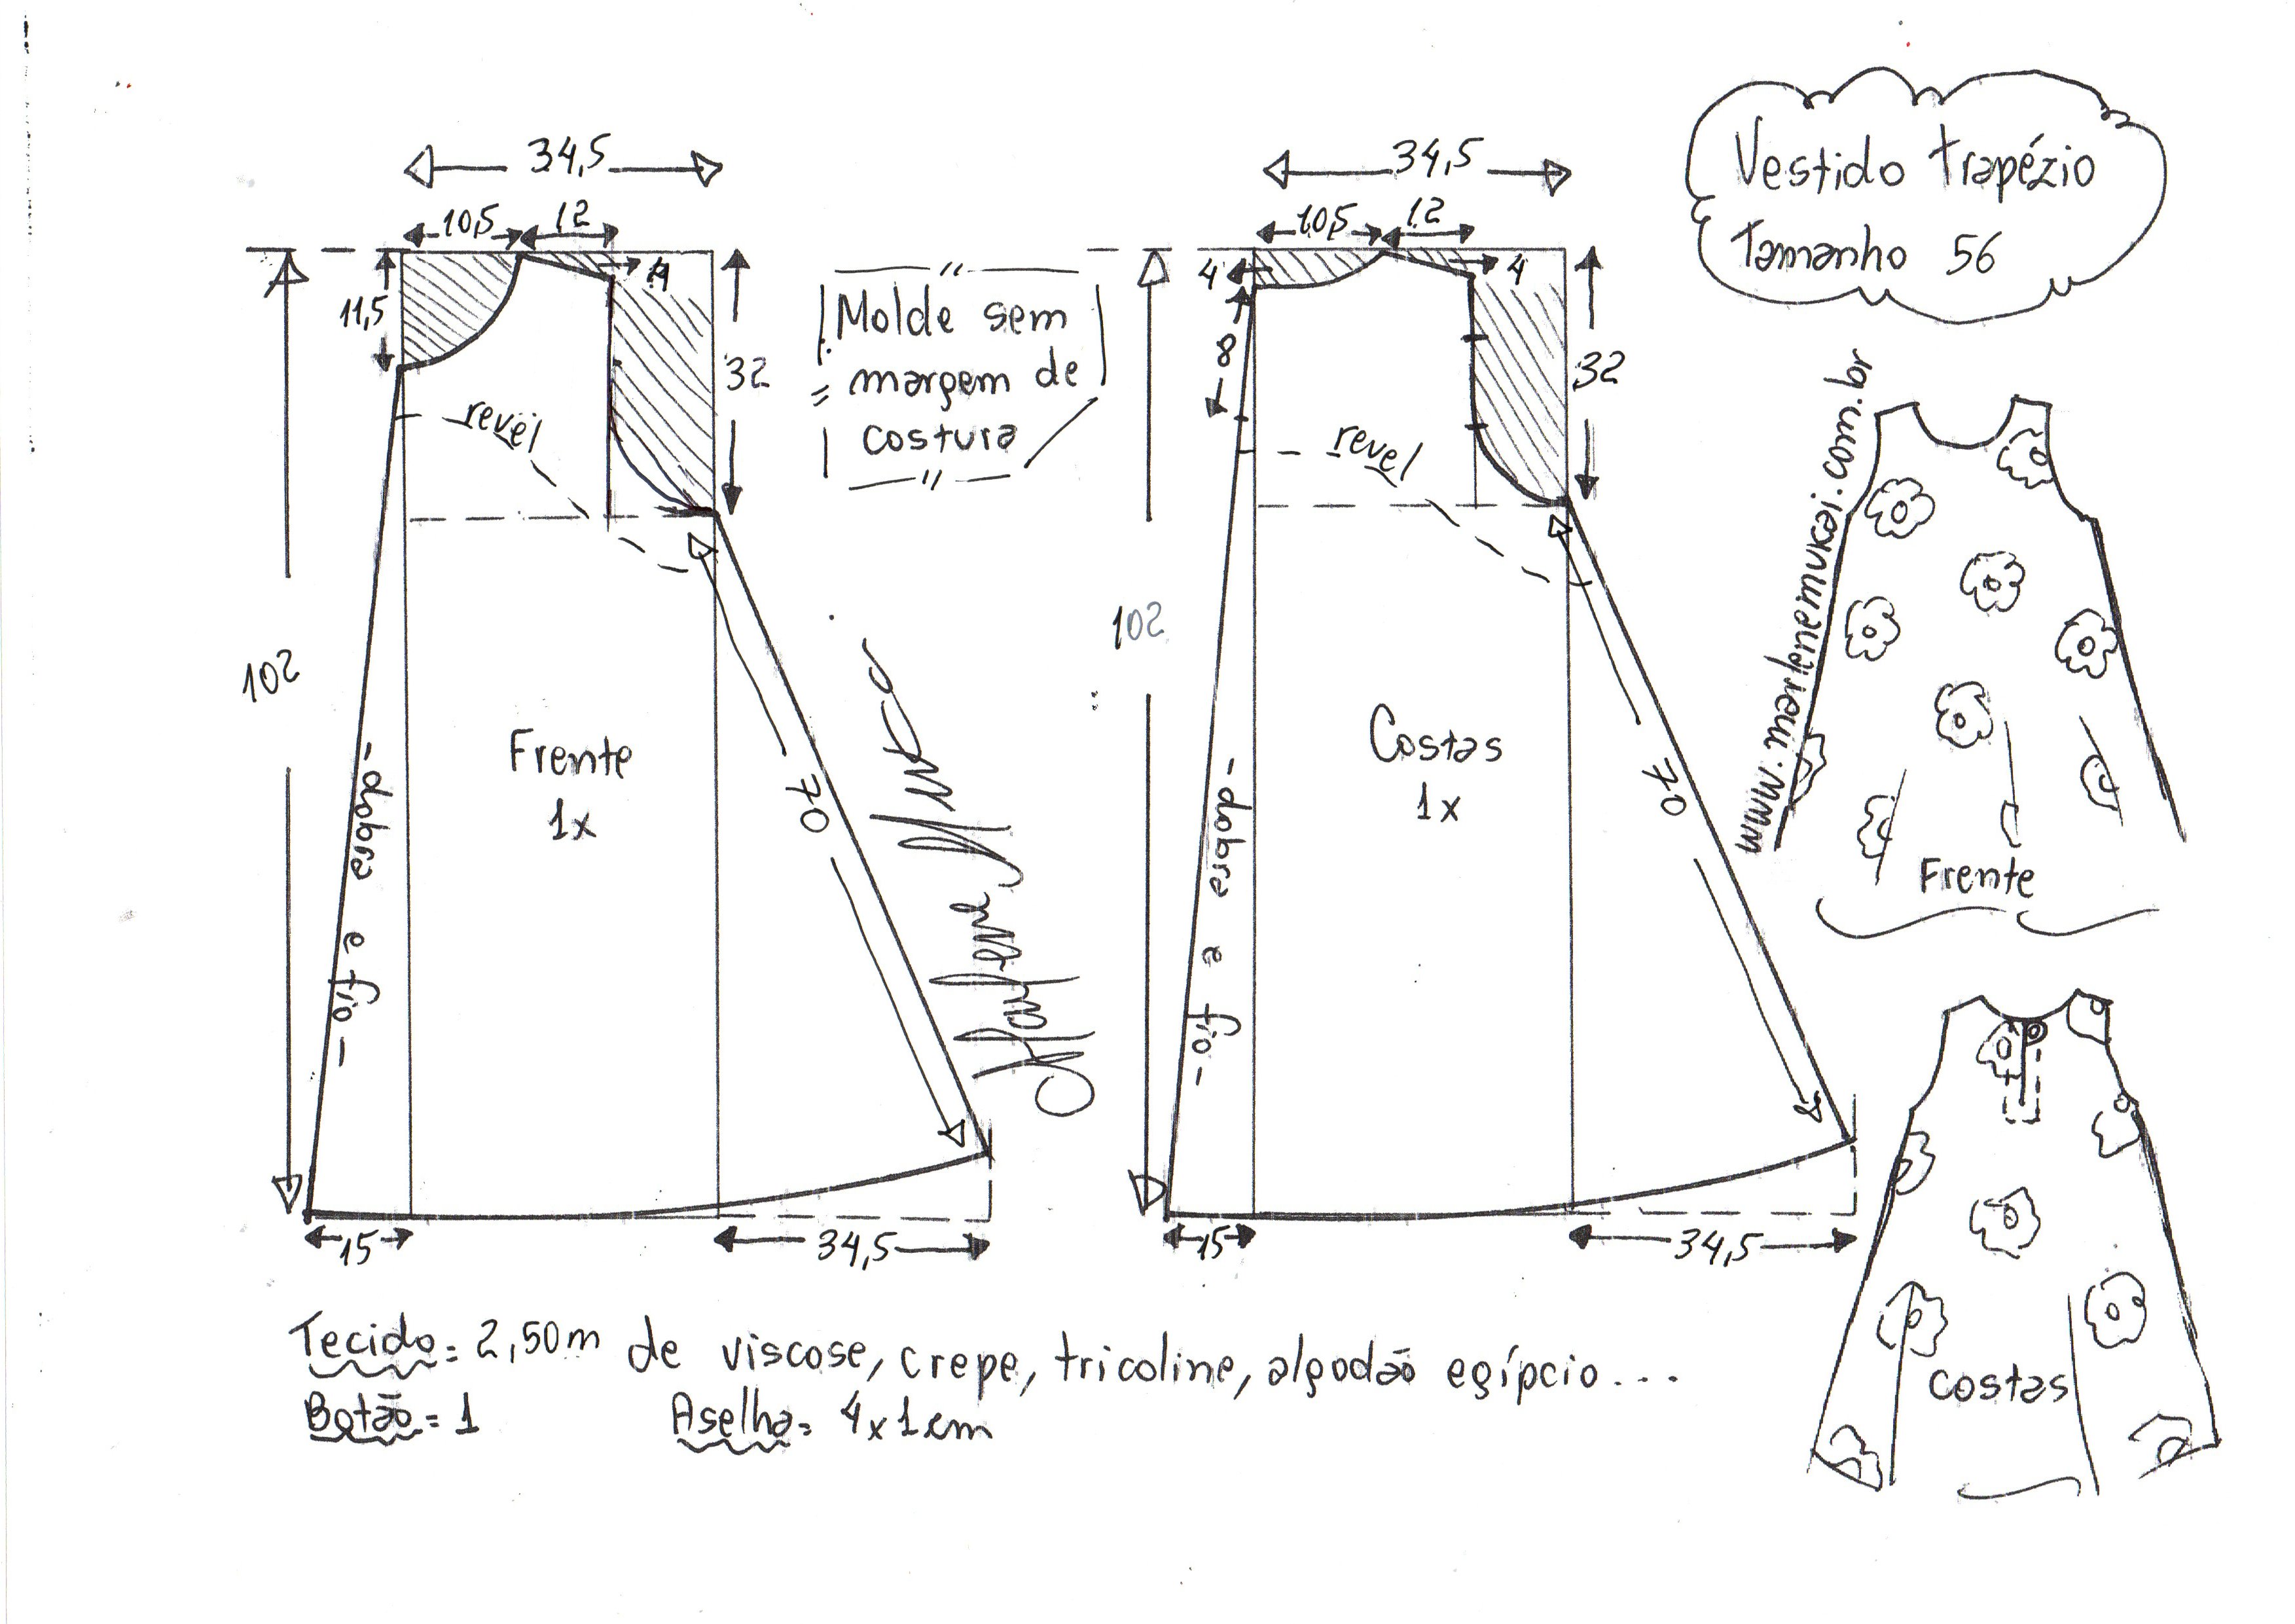 34,5
10,5
12
4
11,5
32
revel
102
Frente
1x
70
-dobra e fio-
15
34,5
Molde sem
margem de
costura
Marlene Mukai
34,5
10,5
12
4
4
8
32
revel
102
Costas
1x
70
-dobra e fio-
15
34,5
Vestido trapézio
Tamanho 56
www.marlenemukai.com.br
Frente
Costas
Tecido= 2,50m de viscose, crepe, tricoline, algodão egípcio...
Botão= 1
Aselha= 4x1cm